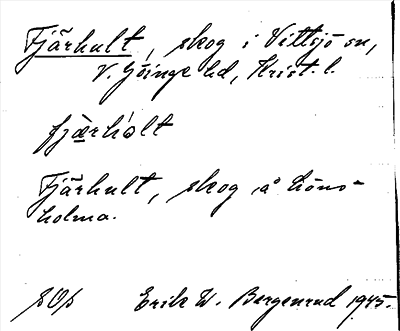 Fjärhult, skog i Vittsjö sn,
V. Göinge hd, Krist. l.
fjærhòlt
Fjärhult, skog å Höns-
holma.
Erik W. Bergenrud 1945.